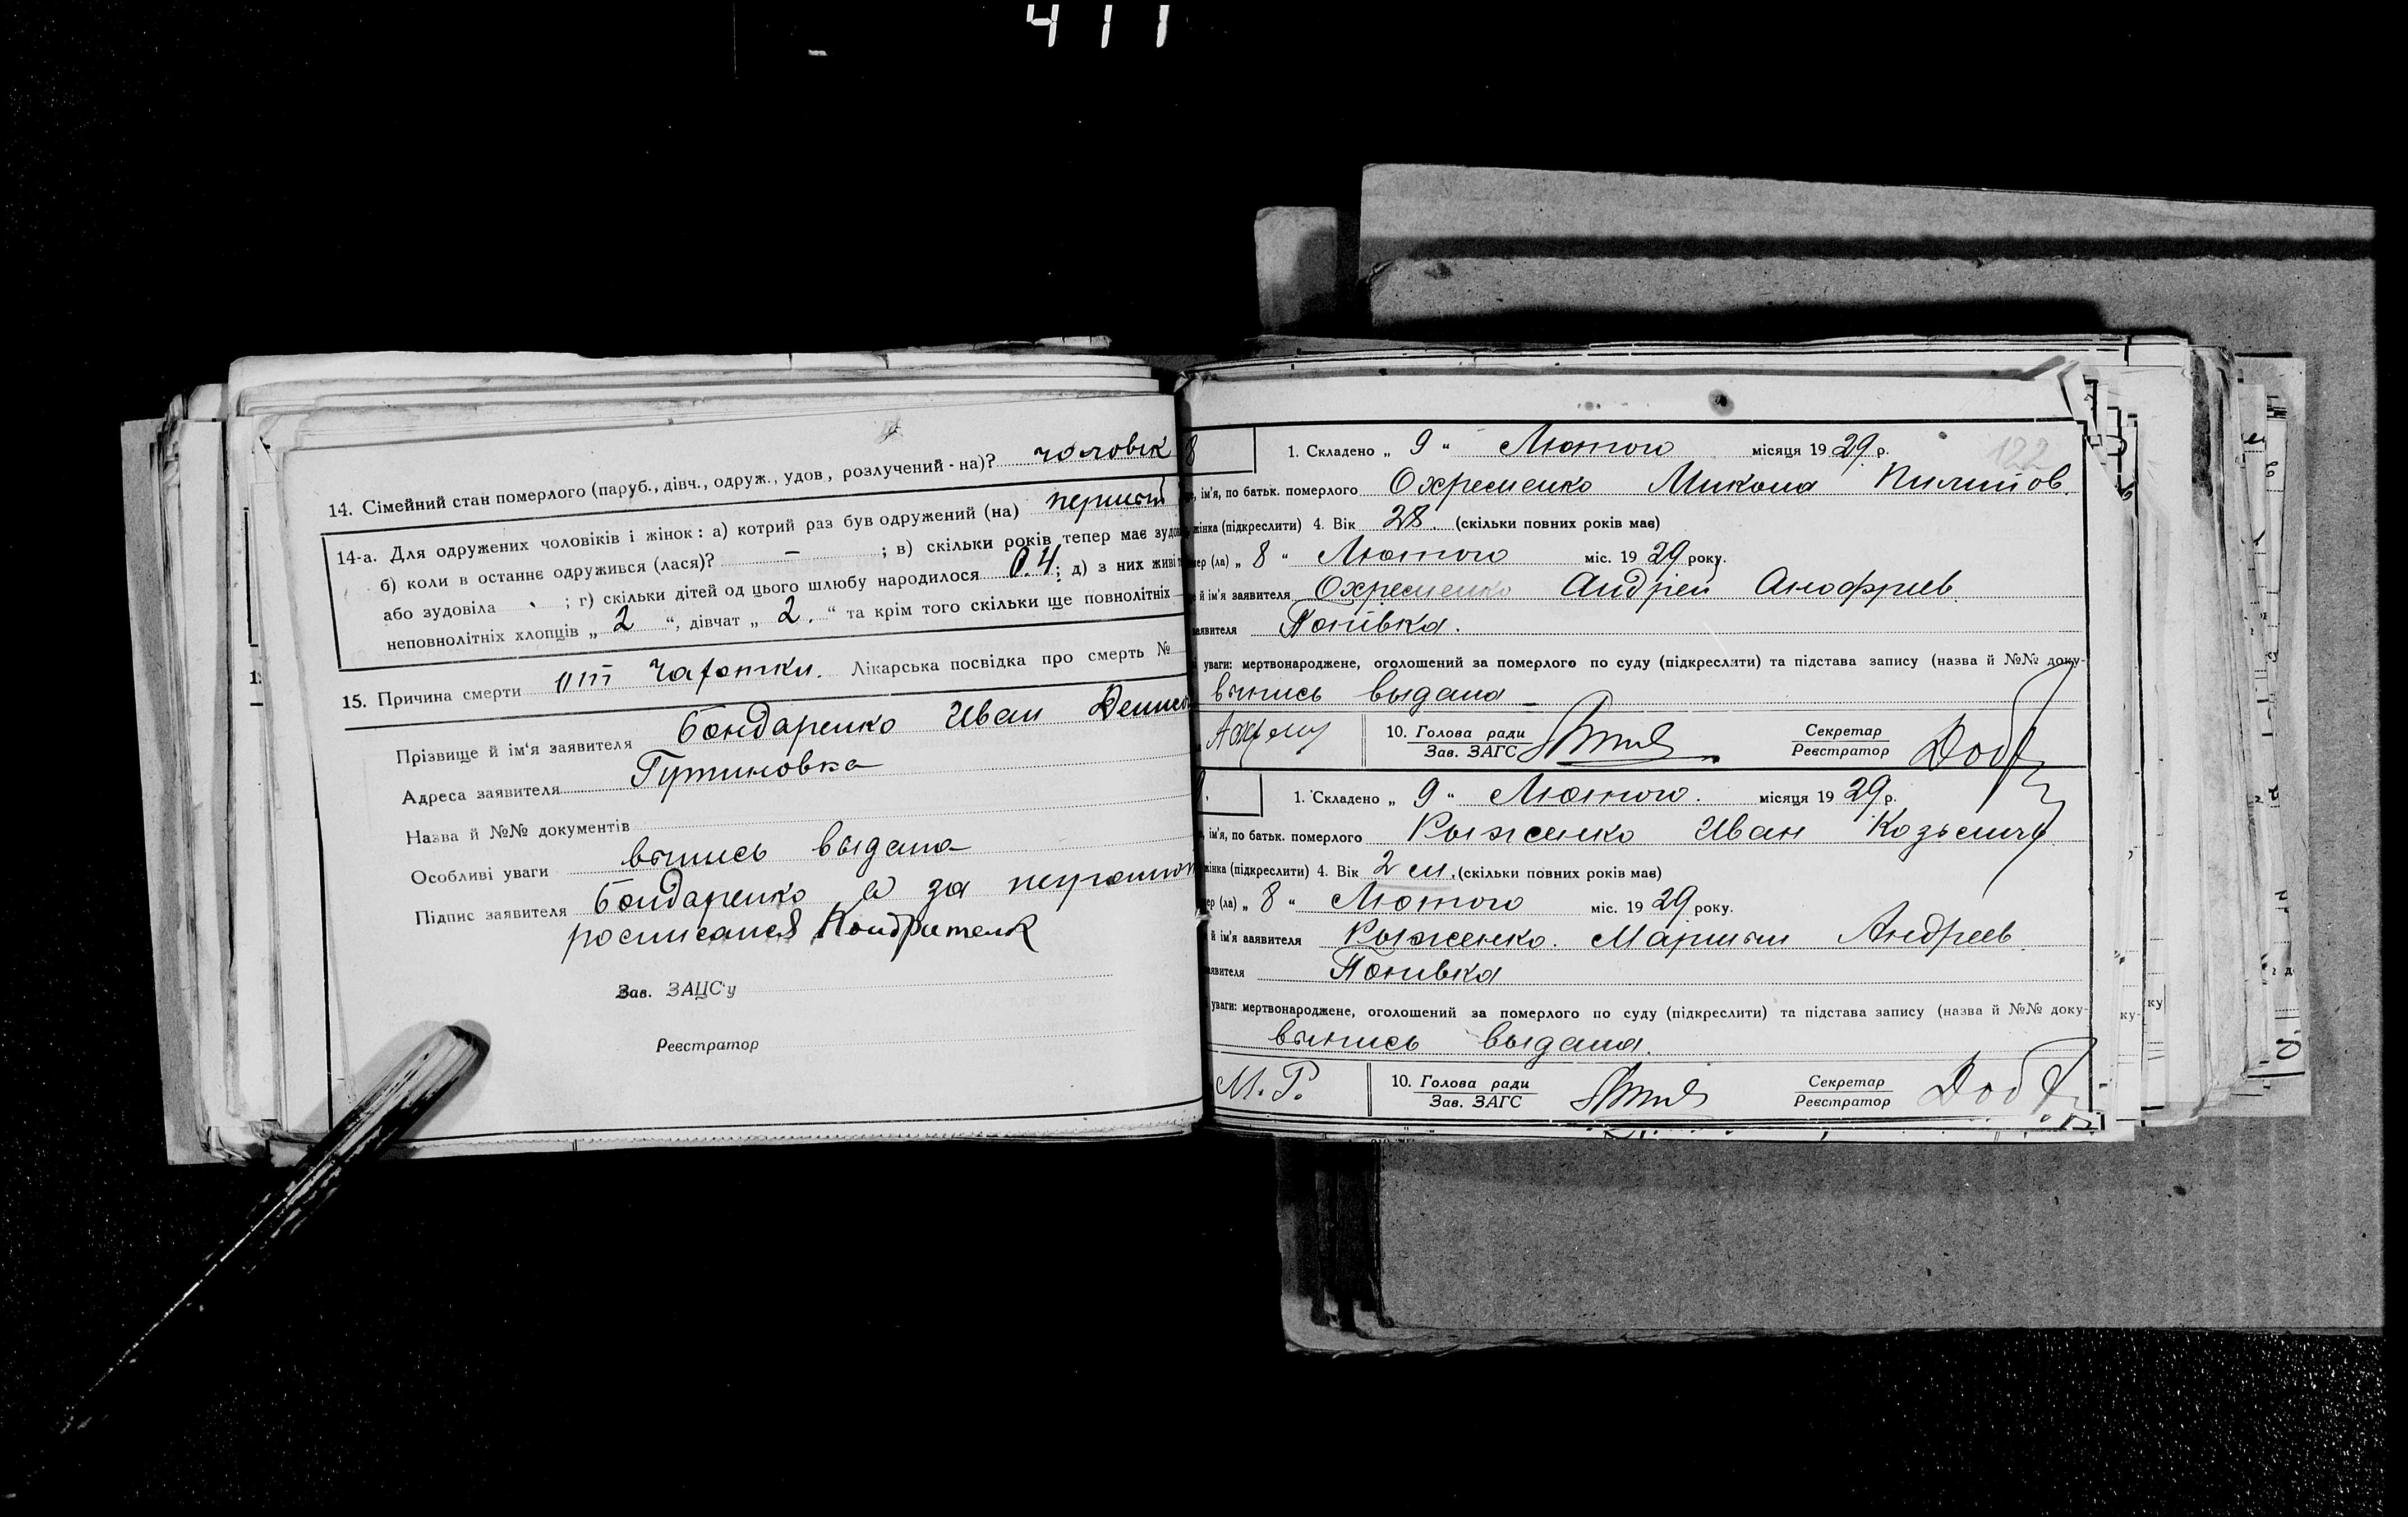 411
14. Сімейний стан померлого (паруб., дівч., одруж., удов., розлучений - на)? чоловік
14-а. Для одружених чоловіків і жінок: а) котрий раз був одружений (на) первый
б) коли в останнє одружився (лася)? — ; в) скільки років тепер має
або зудовіла ; г) скільки дітей од цього шлюбу народилося 4; д) з них живі
неповнолітніх хлопців „ 2 “, дівчат „ 2. “ та крім того скільки ще повнолітніх
15. Причина смерти Лікарська посвідка про смерть №
Прізвище й ім'я заявителя Бондаренко Иван
Адреса заявителя
Назва й №№ документів
Особливі уваги выпись выдана
Підпис заявителя Бондаренко а за
росписался
Зав. ЗАЦС'у
Реєстратор
122
8
1. Складено „ 9 “ Лютого місяця 1929 р.
ім'я, по батьк. померлого Охременко Микола Пилипов.
жінка (підкреслити) 4. Вік 28. (скільки повних років має)
мер (ла) „ 8 “ Лютого міс. 1929 року.
й ім'я заявителя Охременко Андрей Анофриев
заявителя Попівка.
уваги: мертвонароджене, оголошений за померлого по суду (підкреслити) та підстава запису (назва й №№ доку-
выпись выдана
10. Голова ради
Зав. ЗАГС
Секретар
Реєстратор
1. Складено „ 9 “ Лютого. місяця 1929 р.
ім'я, по батьк. померлого Рыженко Иван Козьмич
жінка (підкреслити) 4. Вік 2 м. (скільки повних років має)
мер (ла) „ 8 “ Лютого міс. 1929 року.
й ім'я заявителя Рыженко. Мартын Андреев
заявителя Попівка
уваги: мертвонароджене, оголошений за померлого по суду (підкреслити) та підстава запису (назва й №№ доку-
выпись выдана.
М. Р.
10. Голова ради
Зав. ЗАГС
Секретар
Реєстратор